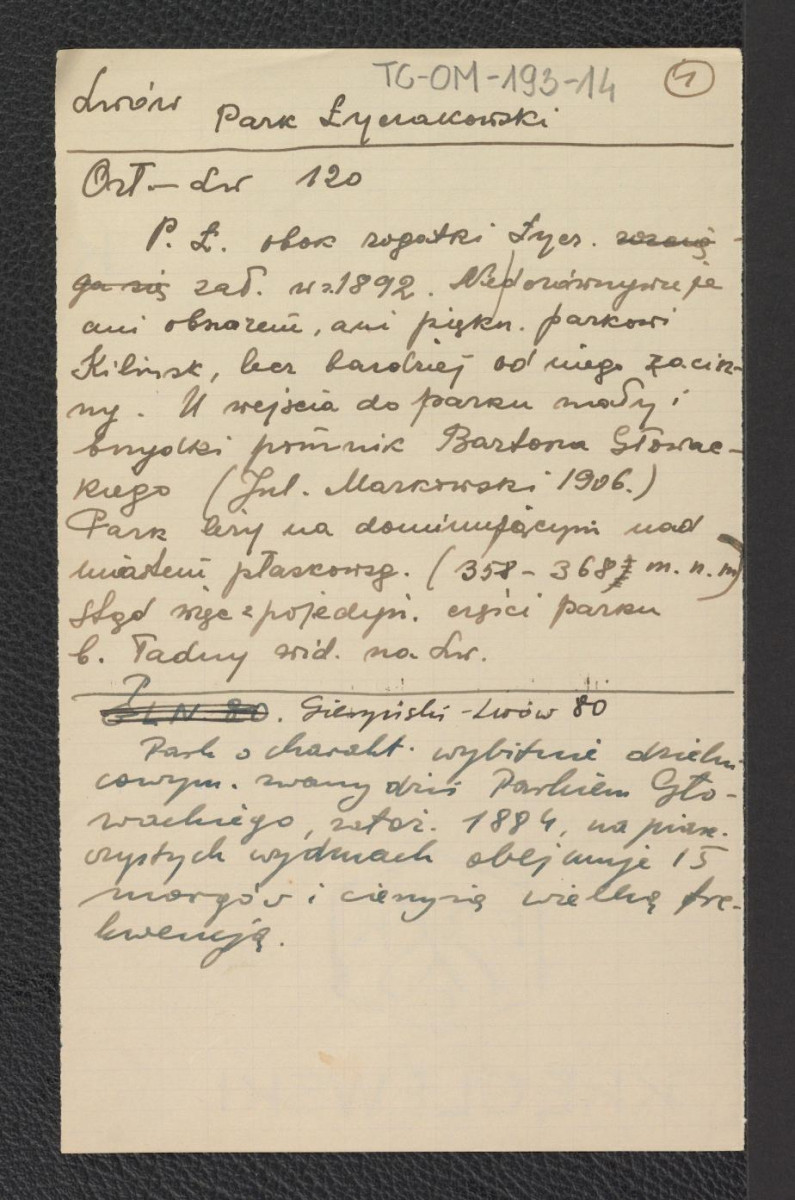 TG-OM-193-14 1
Lwów
Park Łyczakowski
Orł-Lw 120
P. Ł. obok rogatki Łycz.
zał. w r. 1892. Niedorównywuje
ani obszarem, ani piękn. parkowi
Kilińsk, lecz bardziej od niego zacisz-
ny. U wejścia do parku mały i
brzydki pomnik Bartosza Głowac-
kiego (Jul. Markowski 1906.)
Park leży na dominującym nad
miastem płaskowzg. (358-368 m. n. m)
stąd więc z pojedyń. części parku
b. ładny wid. na Lw.
LN. 80. -Lwów 80
Park o charakt. wybitnie dzielni-
cowym. zwany dziś Parkiem Gło-
wackiego, założ. 1884, na piasz.
czystych wydmach obejmuje 15
morgów i cieszy się wielką fre-
kwencją.